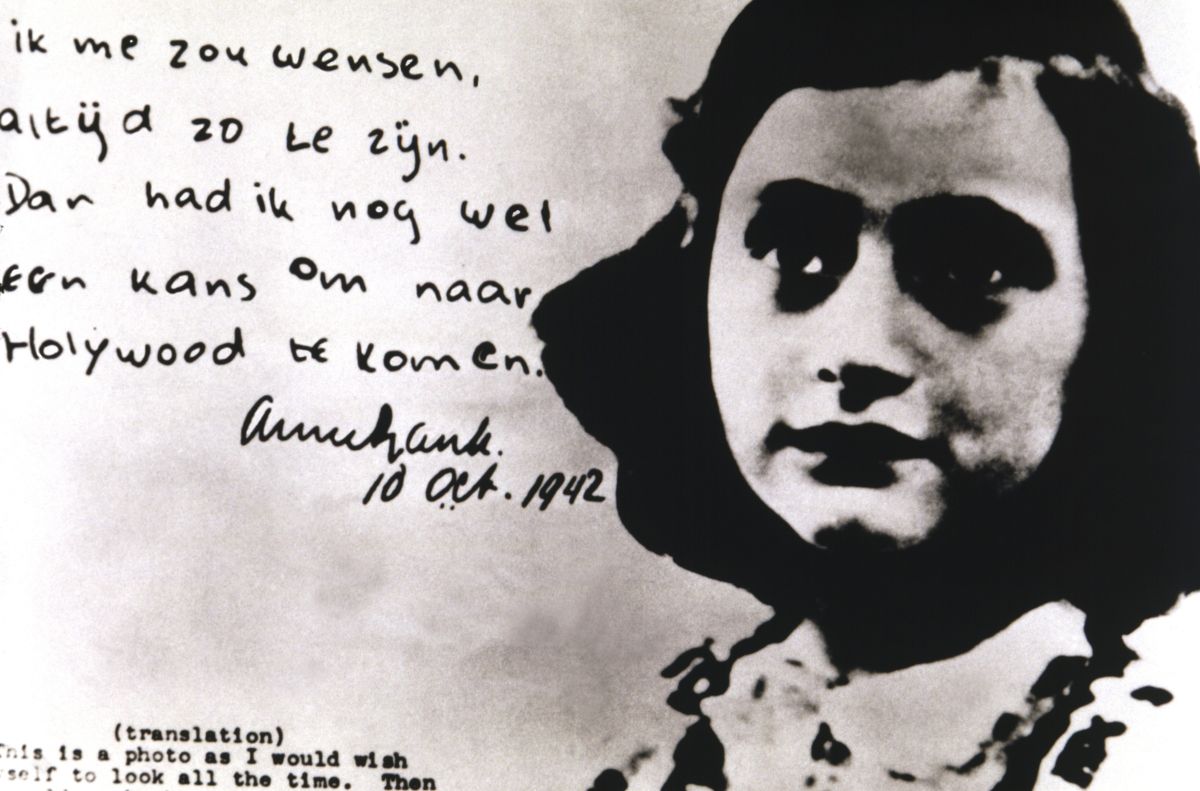 ik me zou wensen,
altijd zo te zijn.
Dan had ik nog wel
een kans om naar
Holywood te komen.
AnneFrank.
10 Oct. 1942
(translation)
This is a photo as I would wish
yself to look all the time. Then